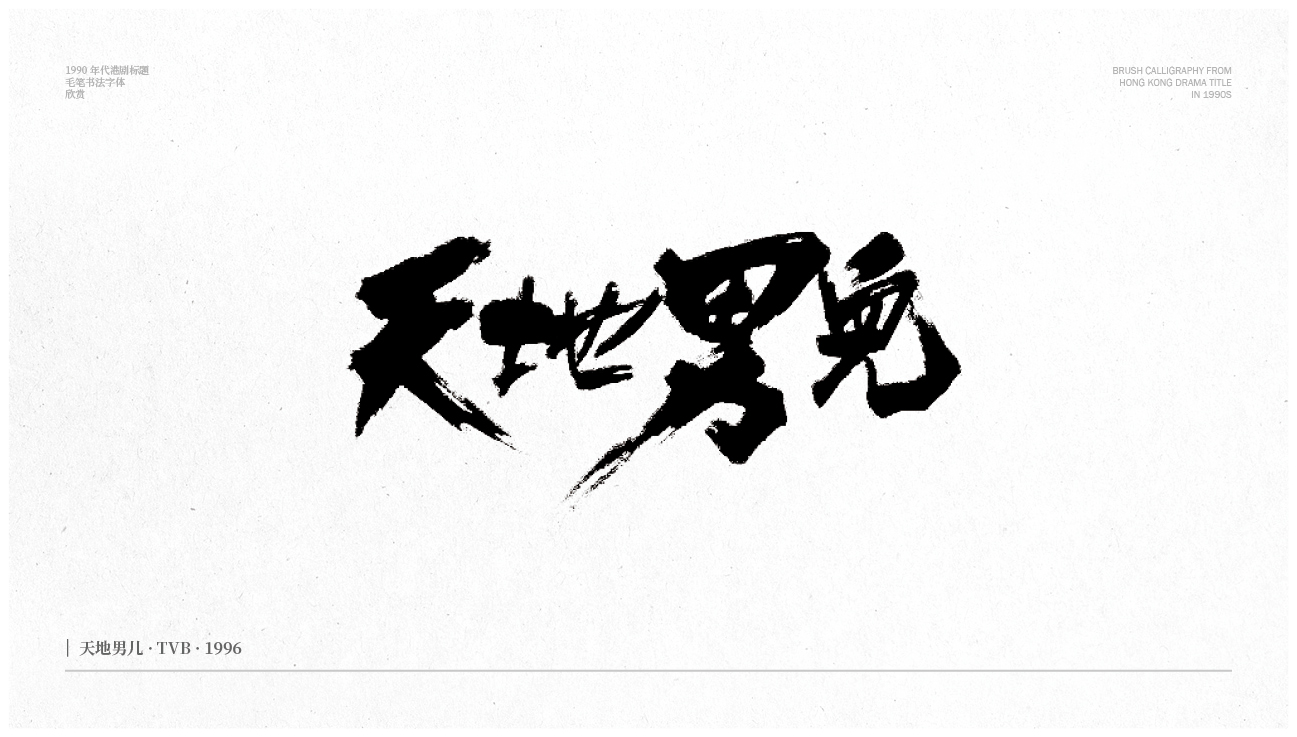 1990 年代港剧标题
毛笔书法字体
欣赏
BRUSH CALLIGRAPHY FROM
HONG KONG DRAMA TITLE
IN 1990S
天地男兒
天地男儿 · TVB · 1996